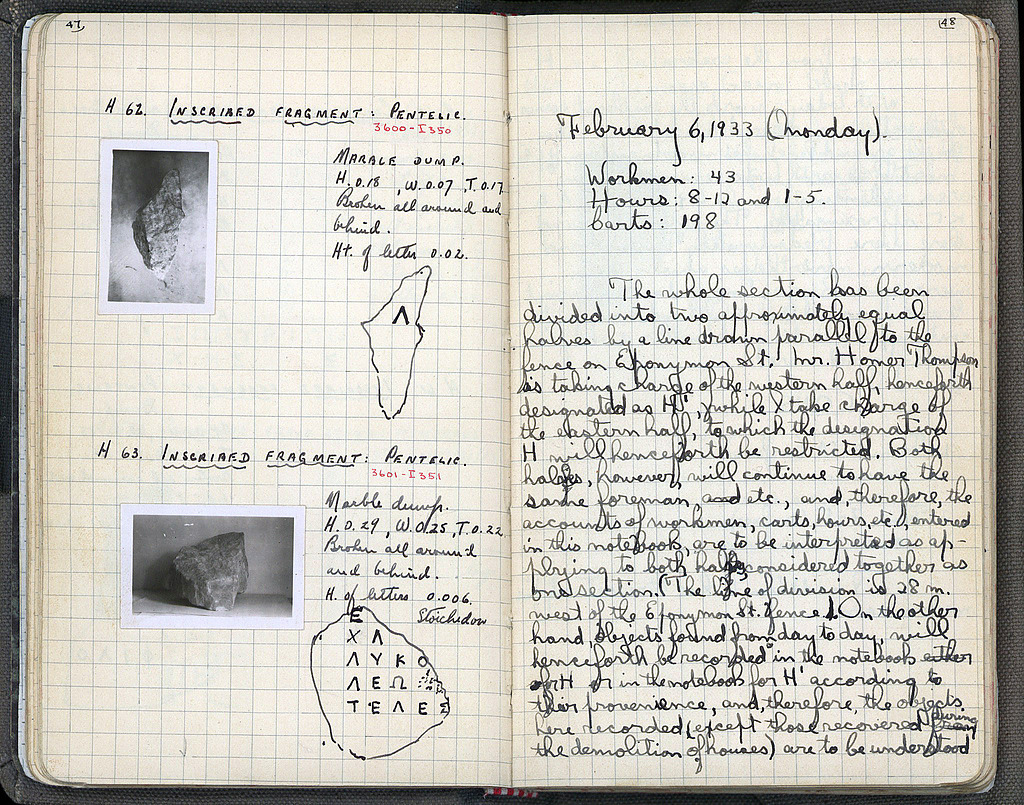 47
H 62. INSCRIBED FRAGMENT: PENTELIC.
3600-I 350
MARBLE DUMP.
H. 0.18, W. 0.07, T. 0.17
Broken all around and
behind.
Ht. of letter 0.02.
Λ
H 63. INSCRIBED FRAGMENT: PENTELIC.
3601-I 351
Marble dump.
H. 0.29, W. 0.25, T. 0.22
Broken all around
and behind.
H. of letters 0.006.
Stoichedon
E
X Λ
Λ Υ Κ Ο
Λ Ε Ω
Τ Ε Λ Ε
48
February 6, 1933 (Monday).
Workmen: 43
Hours: 8-12 and 1-5.
Carts: 198
The whole section has been
divided into two approximately equal
halves by a line drawn parallel to the
fence on Eponymon St. Mr. Homer Thompson
is taking charge of the western half, henceforth
designated as H', while I take charge of
the eastern half, to which the designation
H will henceforth be restricted. Both
halves, however, will continue to have the
same foreman, and etc., and, therefore, the
accounts of workmen, carts, hours, etc., entered
in this notebook, are to be interpreted as ap-
plying to both halves considered together as
one section. (The line of division is 28 m.
west of the Eponymon St. fence). On the other
hand, objects found from day to day, will
henceforth be recorded in the notebook either
for H or in the notebook for H' according to
their provenience, and, therefore, the objects
here recorded (except those recovered during
the demolition of houses) are to be understood